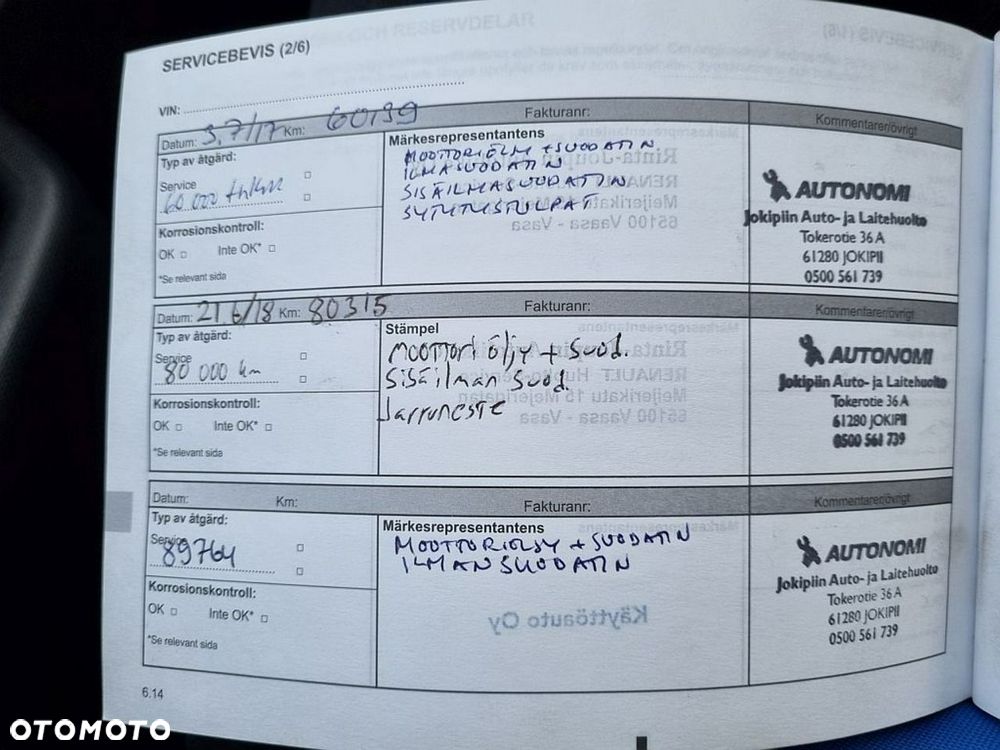 SERVICEBEVIS (2/6)
VIN:
Datum: 3.7/17 Km: 60139 Fakturanr: Kommentarer/övrigt
Typ av åtgärd:
Service
60 000 thkm
Korrosionskontroll:
OK Inte OK*
*Se relevant sida
Märkesrepresentantens
MOOTTORIÖLJY + SUODATIN
ILMASUODATIN
SISÄILMASUODATIN
SYTYTYSTULPAT
AUTONOMI
Jokipiin Auto- ja Laitehuolto
Tokerotie 36 A
61280 JOKIPII
0500 561 739
Datum: 21 6/18 Km: 80315 Fakturanr: Kommentarer/övrigt
Typ av åtgärd:
Service
80 000 km
Korrosionskontroll:
OK Inte OK*
*Se relevant sida
Stämpel
Moottori öljy + Suod.
Sisäilman Suod.
Jarruneste
AUTONOMI
Jokipiin Auto- ja Laitehuolto
Tokerotie 36 A
61280 JOKIPII
0500 561 739
Datum: Km: Fakturanr: Kommentarer/övrigt
Typ av åtgärd:
Service
89764
Korrosionskontroll:
OK Inte OK*
*Se relevant sida
Märkesrepresentantens
MOOTTORIÖLJY + SUODATIN
ILMANSUODATIN
Käyttöauto Oy
AUTONOMI
Jokipiin Auto- ja Laitehuolto
Tokerotie 36 A
61280 JOKIPII
0500 561 739
6.14
OTOMOTO